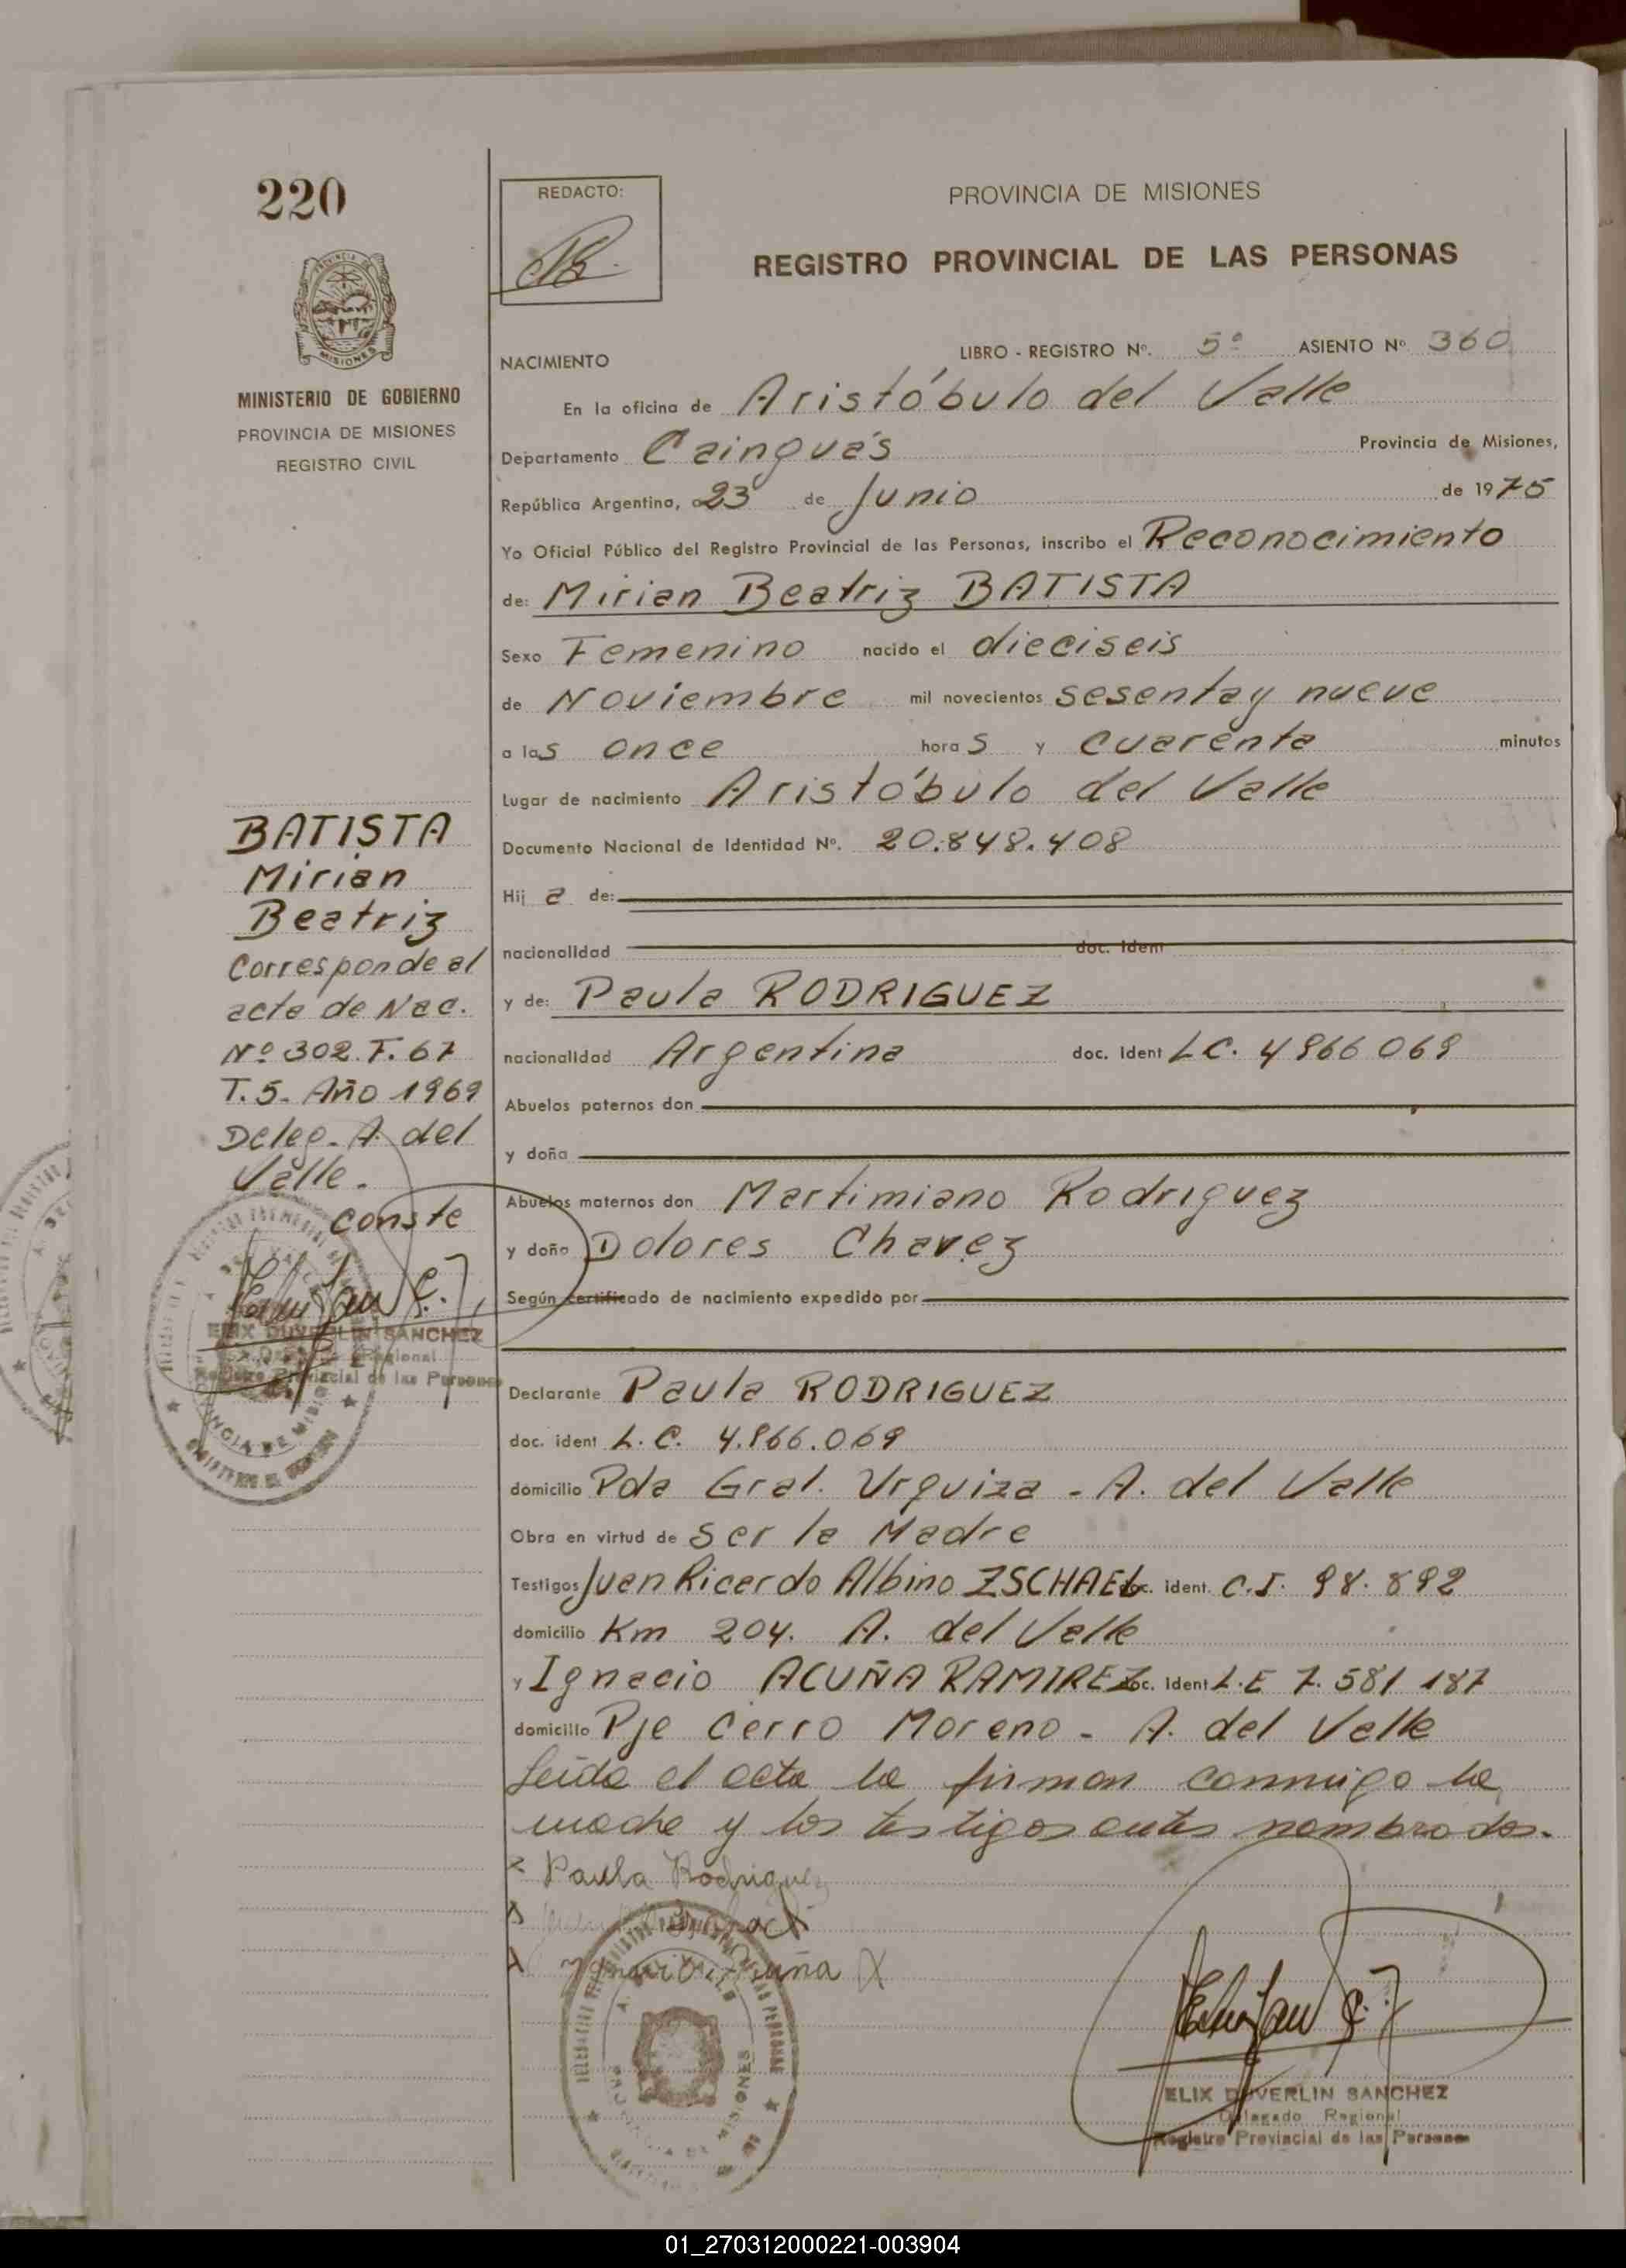 220
REDACTO:
PROVINCIA DE MISIONES
REGISTRO PROVINCIAL DE LAS PERSONAS
MISIONES
MINISTERIO DE GOBIERNO
PROVINCIA DE MISIONES
REGISTRO CIVIL
NACIMIENTO LIBRO - REGISTRO Nº. 5º ASIENTO Nº. 360
En la oficina de Aristóbulo del Valle
Departamento Cainguás Provincia de Misiones,
República Argentina, a 23 de Junio de 1975
Yo Oficial Público del Registro Provincial de las Personas, inscribo el Reconocimiento
de: Mirian Beatriz BATISTA
Sexo Femenino nacido el dieciseis
de Noviembre mil novecientos sesenta y nueve
a las once horas y cuarenta minutos
Lugar de nacimiento Aristóbulo del Valle
Documento Nacional de Identidad Nº. 20.848.408
Hija de:
nacionalidad doc. Ident
y de: Paula RODRIGUEZ
nacionalidad Argentina doc. Ident LC. 4966069
Abuelos paternos don
y doña
Abuelos maternos don Martimiano Rodriguez
y doña Dolores Chavez
Según certificado de nacimiento expedido por
Declarante Paula RODRIGUEZ
doc. ident L.C. 4.966.069
domicilio Pda Gral. Urquiza - A. del Valle
Obra en virtud de ser la Madre
Testigos Juan Ricardo Albino ZSCHAEL doc. ident. C.I. 98.892
domicilio Km 204. A. del Valle
y Ignacio ACUÑA RAMIREZ doc. Ident L.E 7.581 187
domicilio Pje Cerro Moreno - A. del Valle
Leida el acta la firman conmigo la
madre y los testigos antes nombrados.
Paula Rodriguez
Ignacio Acuña
ELIX DUVERLIN SANCHEZ
Delegado Regional
Registro Provincial de las Personas
BATISTA
Mirian
Beatriz
Corresponde al
acta de Nac.
Nº 302. F. 67
T. 5. Año 1969
Deleg. A. del
Valle.
Conste
ELIX DUVERLIN SANCHEZ
Delegado Regional
Registro Provincial de las Personas
01_270312000221-003904